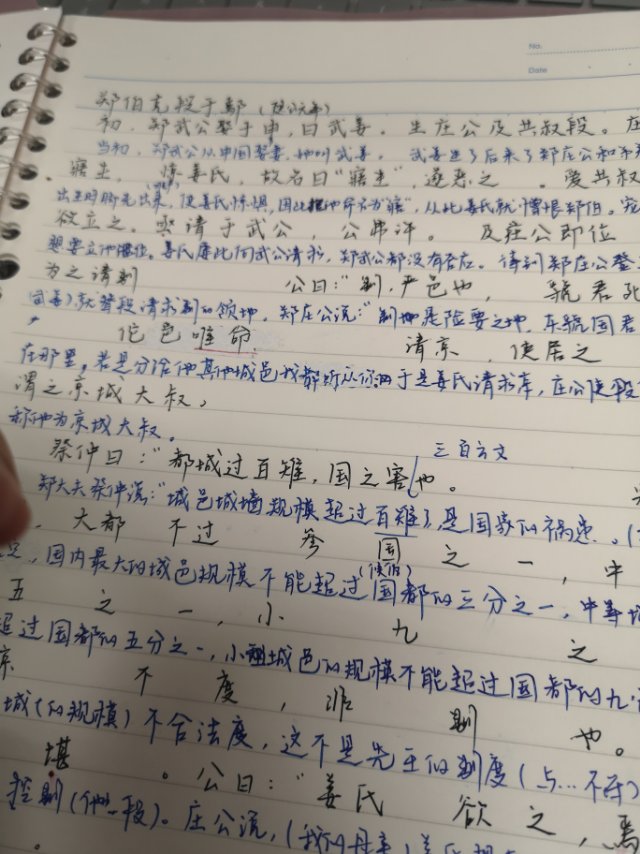 No.
Date
郑伯克段于鄢（隐公元年）
初，郑武公娶于申，曰武姜。生庄公及共叔段。庄
当初，郑武公从申国娶妻，她叫武姜。武姜生了后来了郑庄公和
寤生，惊姜氏，故名曰“寤生”，遂恶之。爱共叔
出生时脚先出来，使姜氏惊惧，因此把他命名为“寤”，从此姜氏就憎恨郑伯。
欲立之。亟请于武公，公弗许。及庄公即位
想要立他继位。姜氏屡屡向武公请求，郑武公都没有答应。等到郑庄公登
为之请制 公曰：“制，严邑也，虢君死
就替段请求制的领地，郑庄公说：“制地是险要之地，东虢国君
佗邑唯命 请京，使居之
在那里，若是分给他其他城邑我都听从你的于是姜氏请求京，庄公使段
谓之京城大叔，
称他为京城大叔。
祭仲曰：“都城过百雉，国之害也。 三百方丈
郑大夫祭仲说：“城邑城墙规模超过百雉了，是国家的祸患。
，大都 不过 参 国 之 一，中
国内最大的城邑规模不能超过（侯伯）国都的三分之一，中等城
五 之 一，小 九 之
超过国都的五分之一，小城邑的规模不能超过国都的九
不 度，非 制 也。
城（的规模）不合法度，这不是先王的制度（与…不符）
堪。公曰：“姜氏 欲 之，焉
控制（他—段）。庄公说，（我的母亲）姜氏